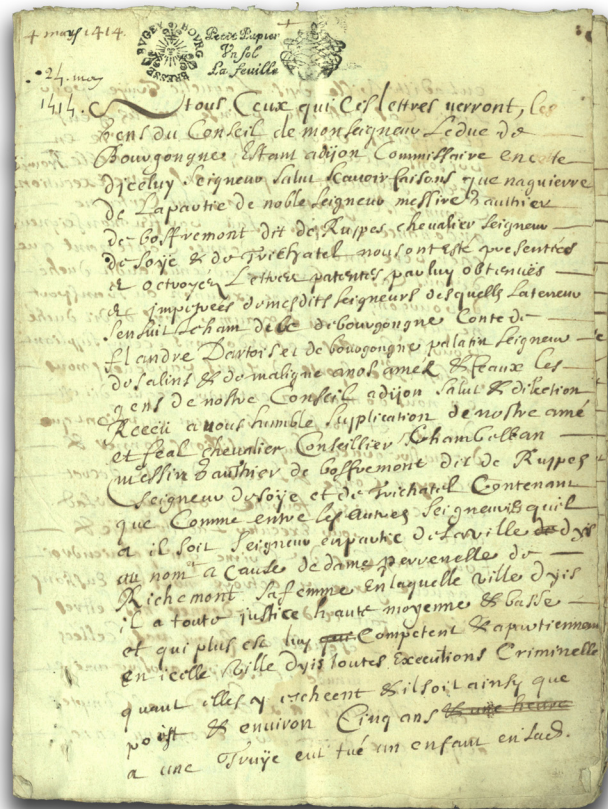 + may 1414.
Petit Papier
Un sol
La feuille
BUGEY BOURG BRESSE
24. may
1414.
A tous Ceux qui Ces lettres verront, les
gens du Conseil de monseigneur Le duc de
Bourgongne Estant adijon Commissaire en cette
dicéluy Seigneur Salut Scavoir faisons que naguierre
de La partie de noble Seigneur messire Gauthier
de boffremont dit de Ruppes chevalier Seigneur
de Soye & de Trichatel nous ont esté presentées
& octroyéz Lettres patentes par luy obtenuës
& impetrées de mesdits Seigneurs desquells La teneur
Sensuit Jeham de bourgongne Conte de
flandre Dartois et de bourgongne palatin Seigneur
de Salins & de maligne a nos amez & feaux les
gens de nostre Conseil adijon Salut & dilection
Receu a nous humble Supplication de nostre amé
et feal chevalier Conseillier Chambellan
messire Gauthier de boffremont dit de Ruppes
Seigneur de Soÿe et de Trichatel Contenant
que Comme entre les autres Seigneuries quil
a il soit Seigneur en partie de La ville dyis
au nom a Cause de dame perrenelle de
Richemont Sa femme En laquelle ville dyis
il a toute justice haute moyenne & basse
et qui plus est luy Competent & apartiennent
En icelle ville dyis toutes Executions Criminelle
quant elles y escheent & il soit ainsy que
& environ Cinq ans
a une Truÿe eut tué un enfant en Lad.